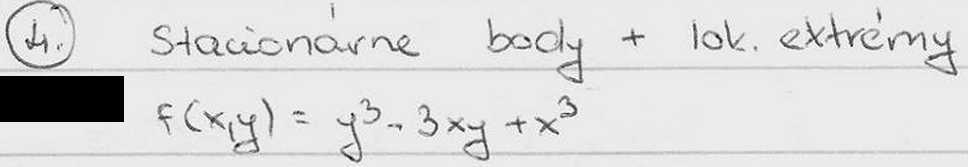 4. Stacionárne body + lok. extrémy
f(x,y) = y³ - 3xy + x³